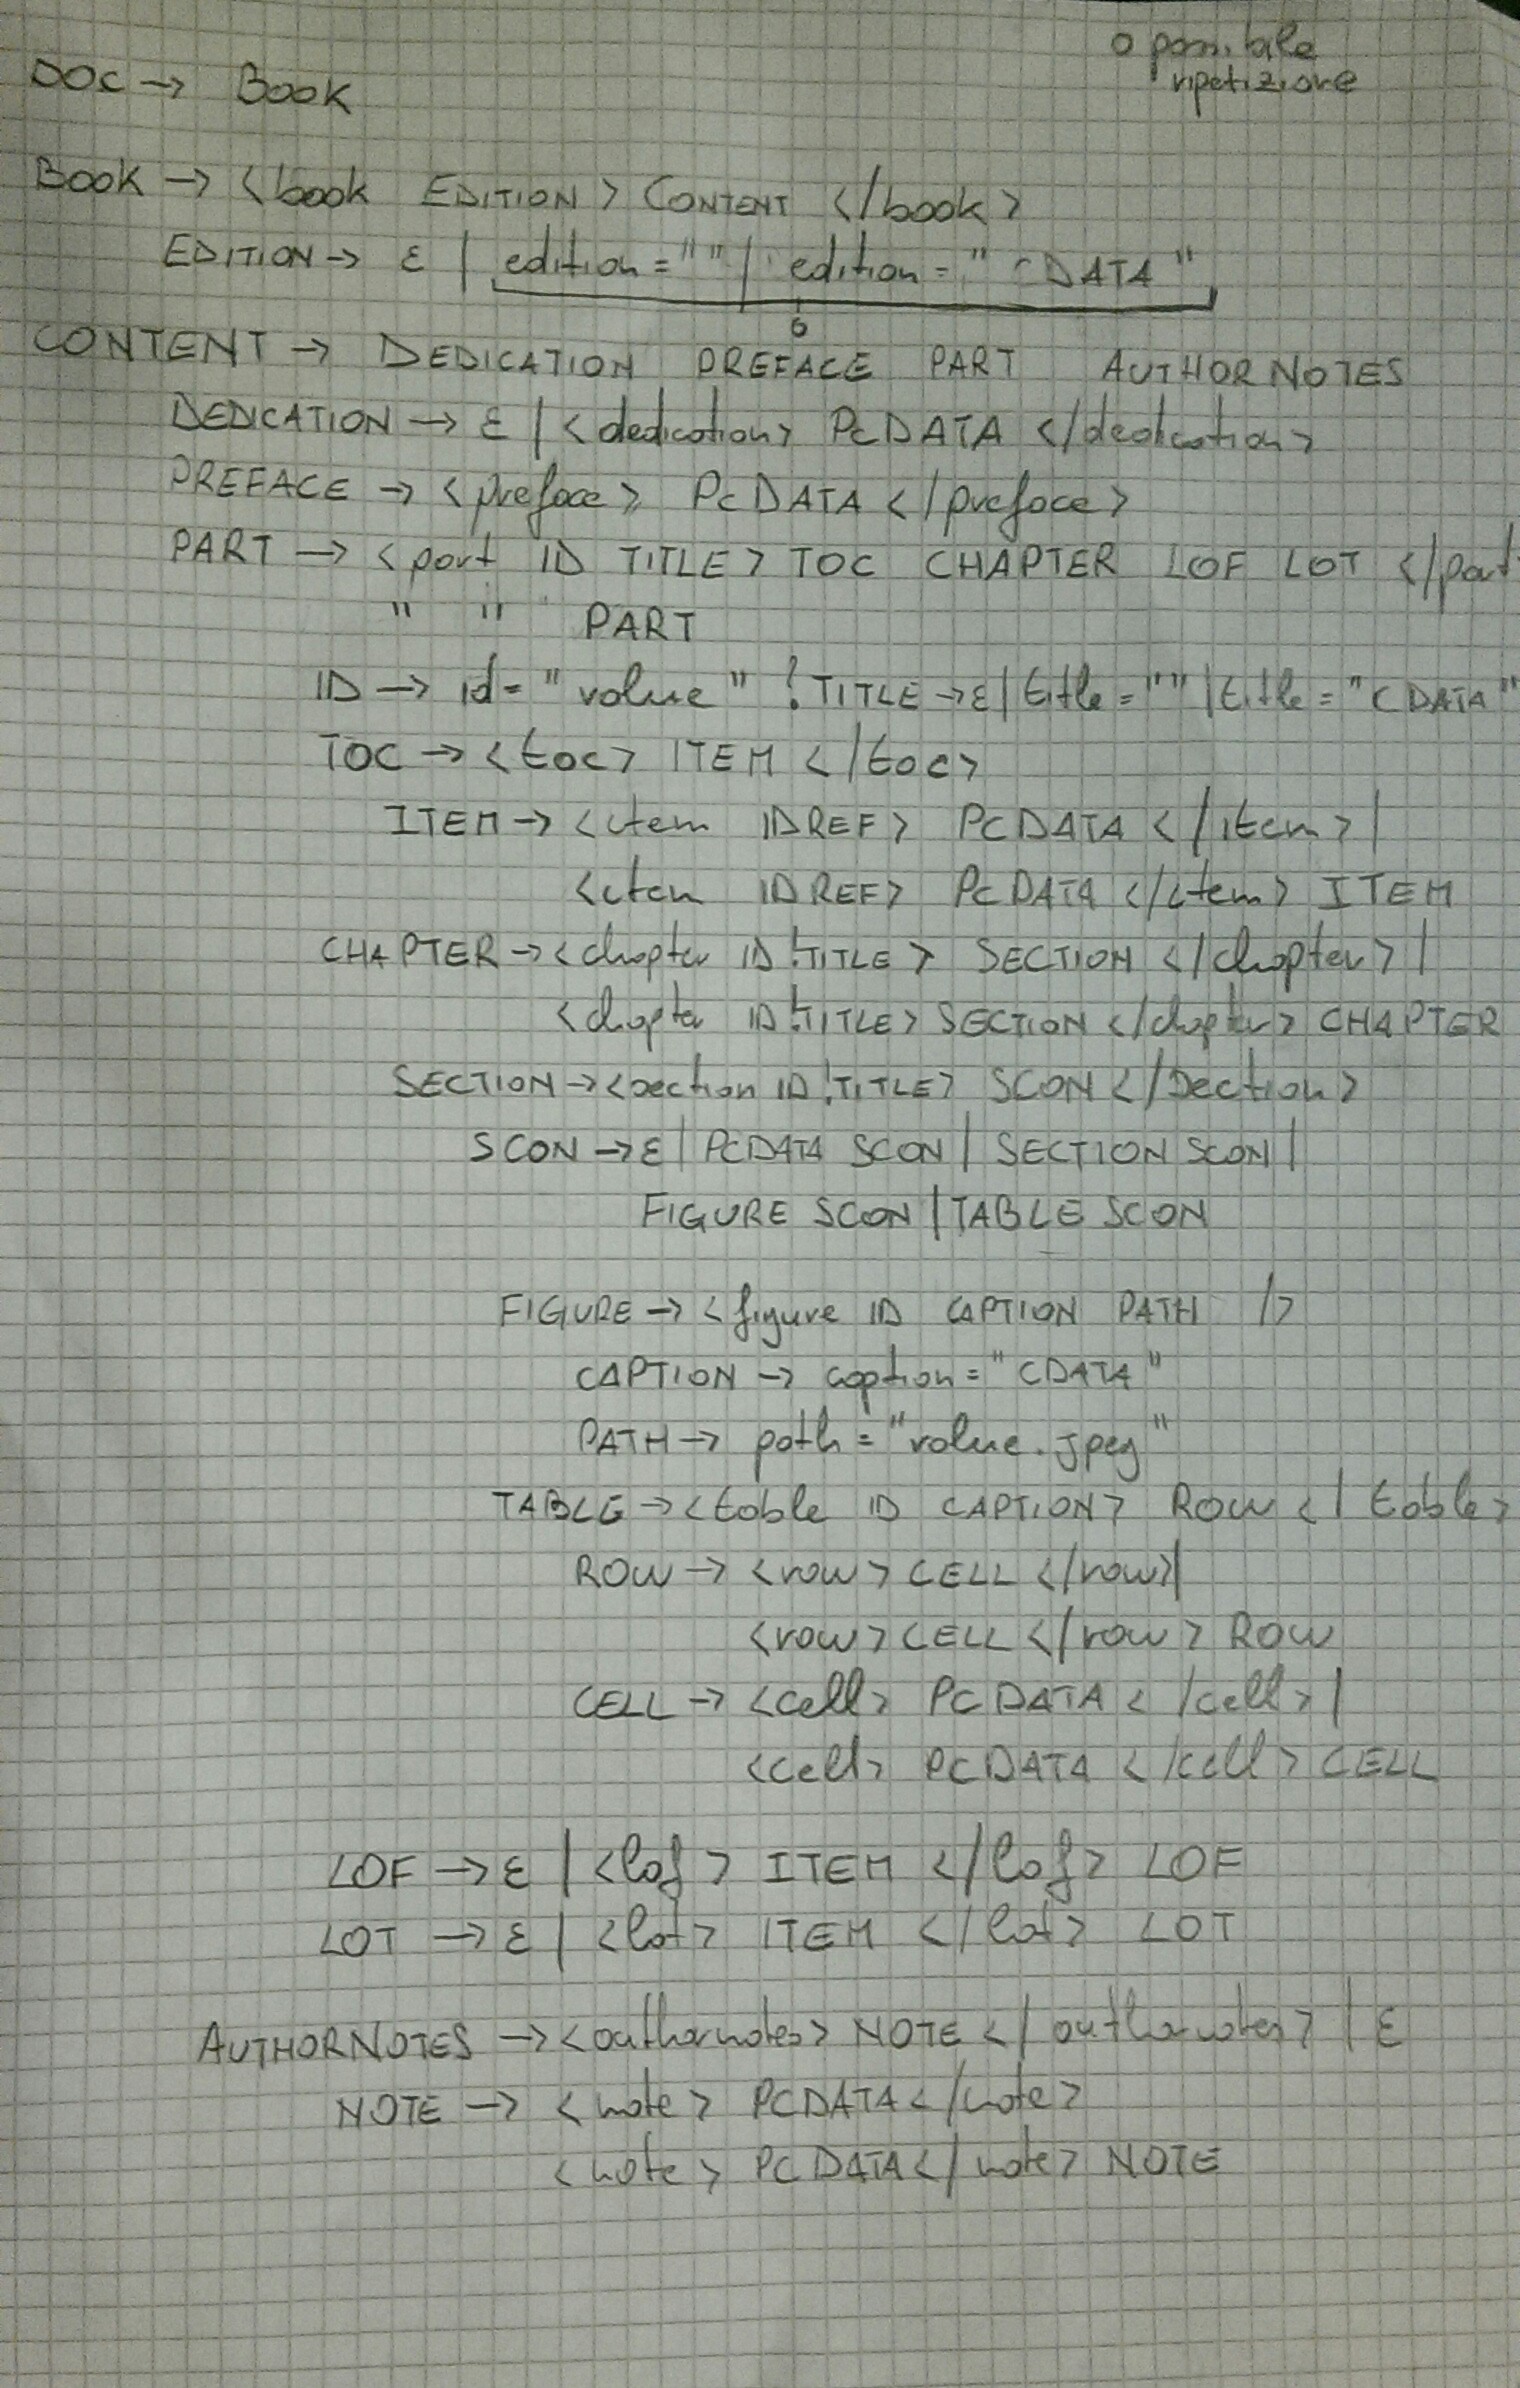 o possibile
ripetizione
DOC → BOOK
BOOK → <book EDITION> CONTENT </book>
EDITION → ε | edition = "" | edition = " CDATA "
o
CONTENT → DEDICATION PREFACE PART AUTHORNOTES
DEDICATION → ε | <dedication> PCDATA </dedication>
PREFACE → <preface> PCDATA </preface>
PART → <part ID TITLE> TOC CHAPTER LOF LOT </part
" " PART
ID → id = " value " ! TITLE → ε | title = "" | title = "CDATA"
TOC → <toc> ITEM </toc>
ITEM → <item IDREF> PCDATA </item> |
<item IDREF> PCDATA </item> ITEM
CHAPTER → <chapter ID !TITLE> SECTION </chapter> |
<chapter ID !TITLE> SECTION </chapter> CHAPTER
SECTION → <section ID !TITLE> SCON </section>
SCON → ε | PCDATA SCON | SECTION SCON |
FIGURE SCON | TABLE SCON
FIGURE → <figure ID CAPTION PATH />
CAPTION → caption = "CDATA"
PATH → path = "value.jpeg"
TABLE → <table ID CAPTION> ROW </table>
ROW → <row> CELL </row> |
<row> CELL </row> ROW
CELL → <cell> PCDATA </cell> |
<cell> PCDATA </cell> CELL
LOF → ε | <lof> ITEM </lof> LOF
LOT → ε | <lot> ITEM </lot> LOT
AUTHORNOTES → <authornotes> NOTE </authornotes> | ε
NOTE → <note> PCDATA </note>
<note> PCDATA </note> NOTE